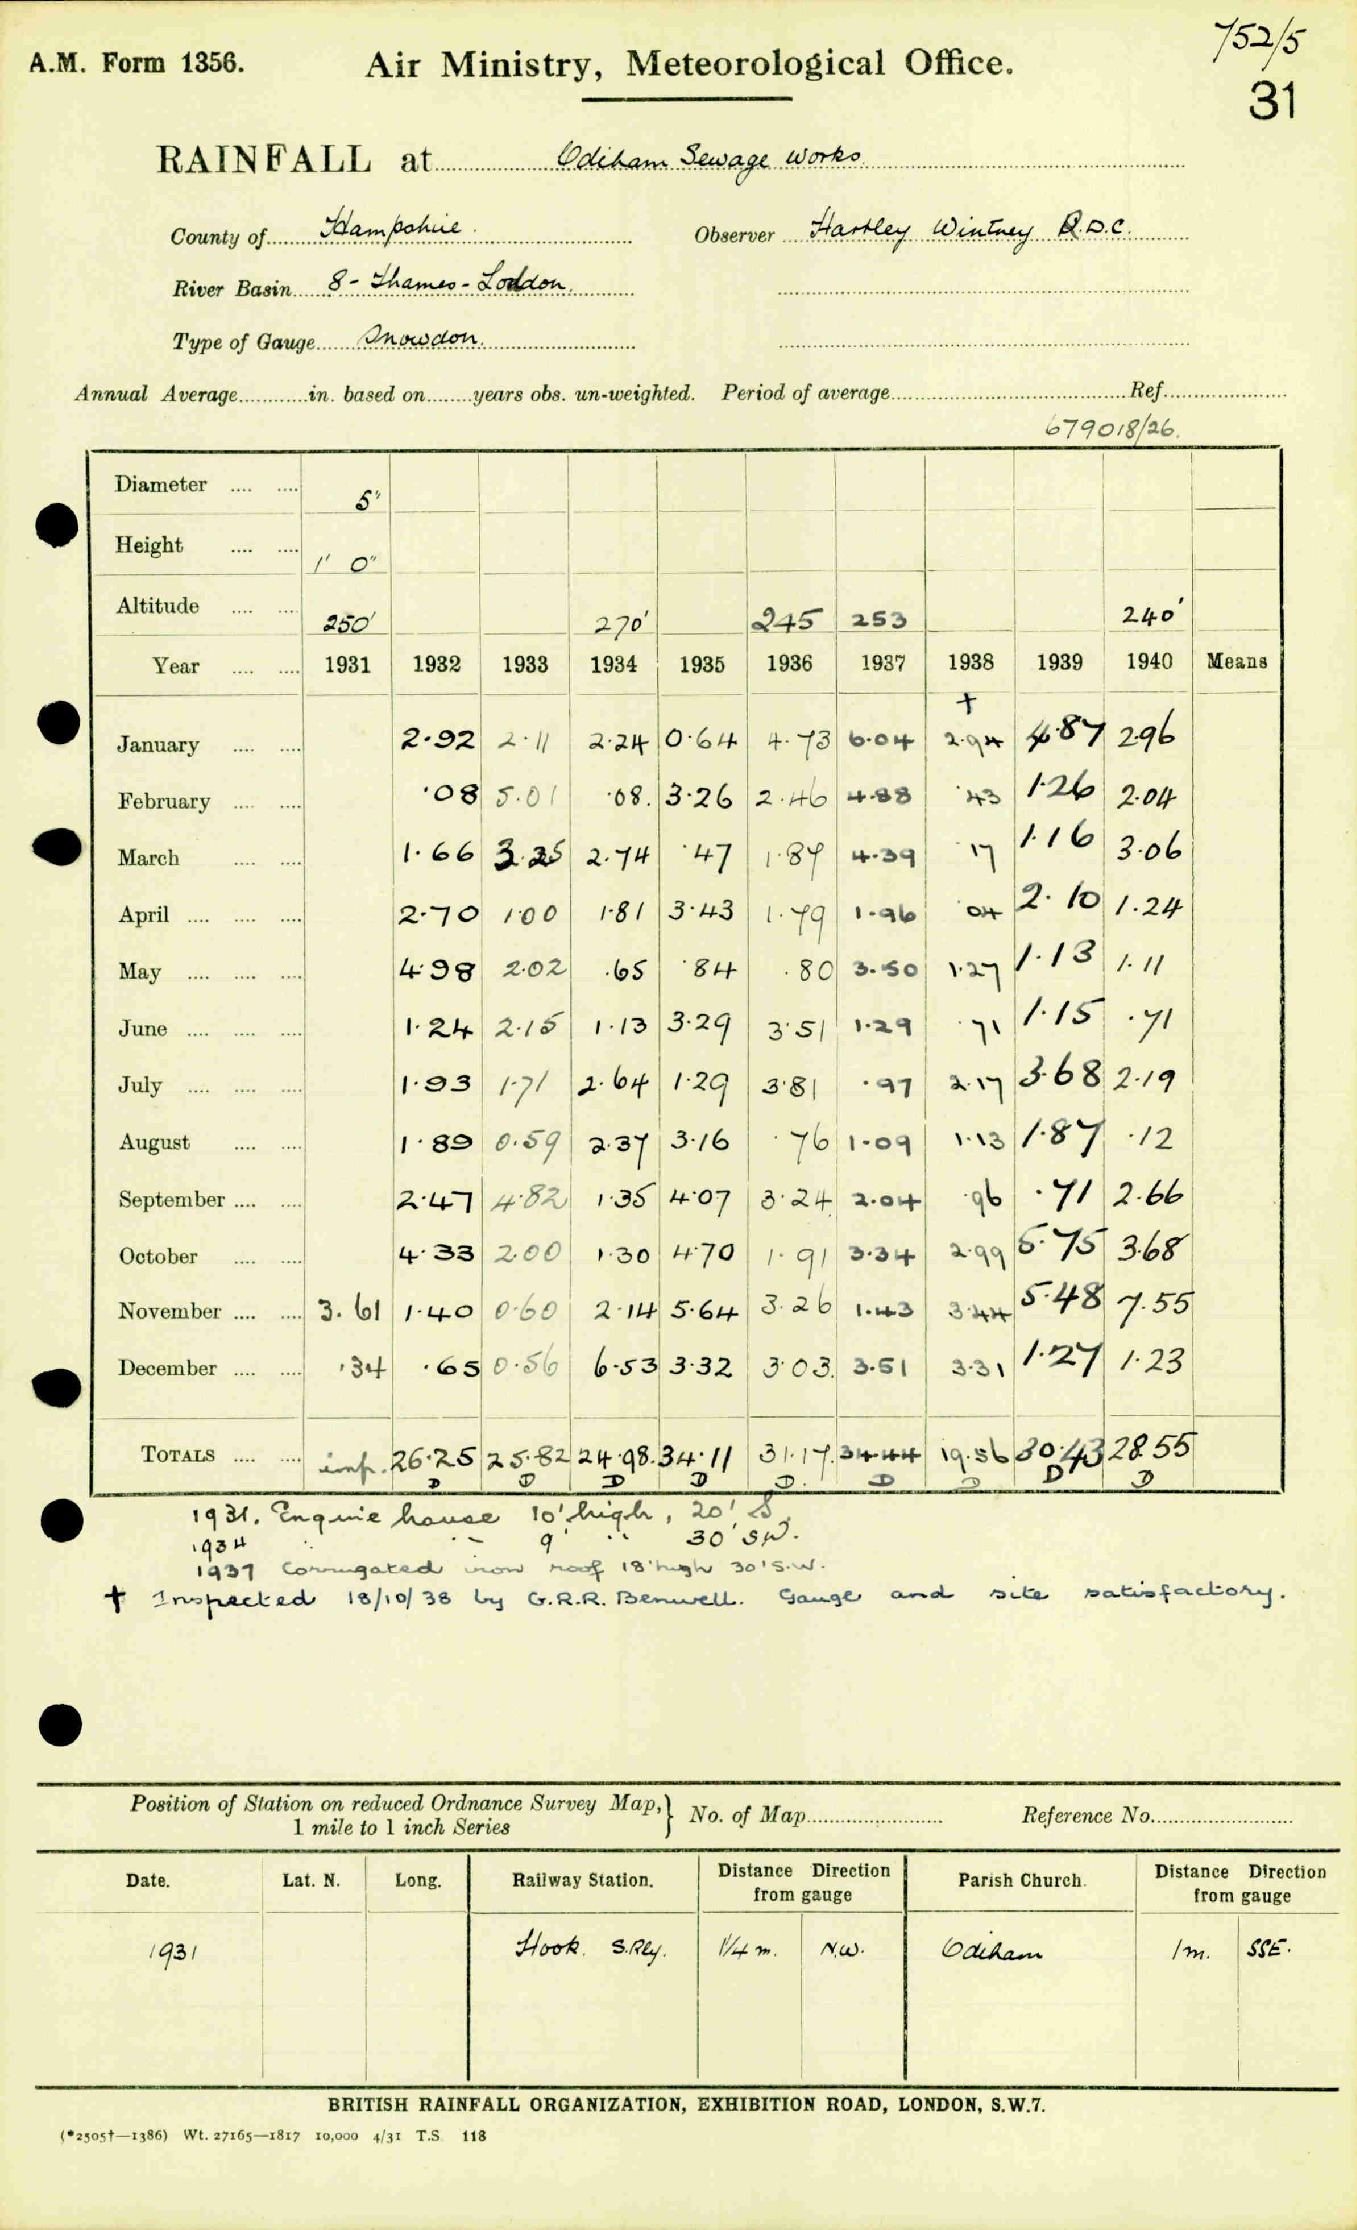 752/5
A.M. Form 1356. Air Ministry, Meteorological Office.
31
RAINFALL at Odiham Sewage Works
County of Hampshire. Observer Hartley Wintney R.D.C.
River Basin 8 - Thames - Loddon.
Type of Gauge Snowdon.
Annual Average in. based on years obs. un-weighted. Period of average Ref.
679018/26.
Diameter 5"
Height 1' 0"
Altitude 250' 270' 245 253 240'
Year 1931 1932 1933 1934 1935 1936 1937 1938 1939 1940 Means
†
January 2.92 2.11 2.24 0.64 4.73 6.04 2.94 4.87 2.96
February .08 5.01 .08 3.26 2.46 4.88 .43 1.26 2.04
March 1.66 3.25 2.74 .47 1.87 4.39 .17 1.16 3.06
April 2.70 1.00 1.81 3.43 1.79 1.96 .04 2.10 1.24
May 4.98 2.02 .65 .84 .80 3.50 1.27 1.13 1.11
June 1.24 2.15 1.13 3.29 3.51 1.29 .71 1.15 .71
July 1.93 1.71 2.64 1.29 3.81 .97 2.17 3.68 2.19
August 1.89 0.59 2.37 3.16 .76 1.09 1.13 1.87 .12
September 2.47 4.82 1.35 4.07 3.24 2.04 .96 .71 2.66
October 4.33 2.00 1.30 4.70 1.91 3.34 2.99 5.75 3.68
November 3.61 1.40 0.60 2.14 5.64 3.26 1.43 3.44 5.48 7.55
December .34 .65 0.56 6.53 3.32 3.03 3.51 3.31 1.27 1.23
TOTALS imp. 26.25 25.82 24.98 34.11 31.17 34.44 19.56 30.43 28.55
D D D D D D D D D
1931. Engine house 10' high, 20' S.
1934 " " 9' " 30' SW.
1937 Corrugated iron roof 18' high 30' S.W.
† Inspected 18/10/38 by G.R.R. Benwell. Gauge and site satisfactory.
Position of Station on reduced Ordnance Survey Map, } No. of Map Reference No.
1 mile to 1 inch Series
Date. Lat. N. Long. Railway Station. Distance Direction from gauge Parish Church. Distance Direction from gauge
1931 Hook S.Rly. 1¼ m. N.W. Odiham 1m. SSE.
BRITISH RAINFALL ORGANIZATION, EXHIBITION ROAD, LONDON, S.W.7.
(*2505†—1386) Wt. 27165—1817 10,000 4/31 T.S. 118